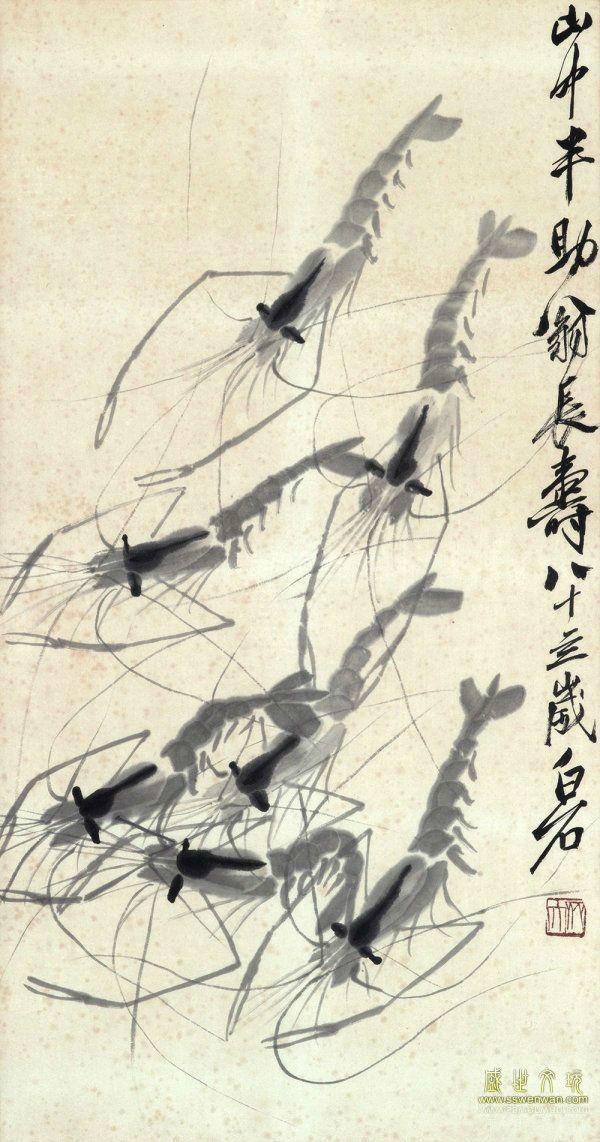 山中半助翁長壽八十三歲白石
盛世文玩
www.sswenwan.com